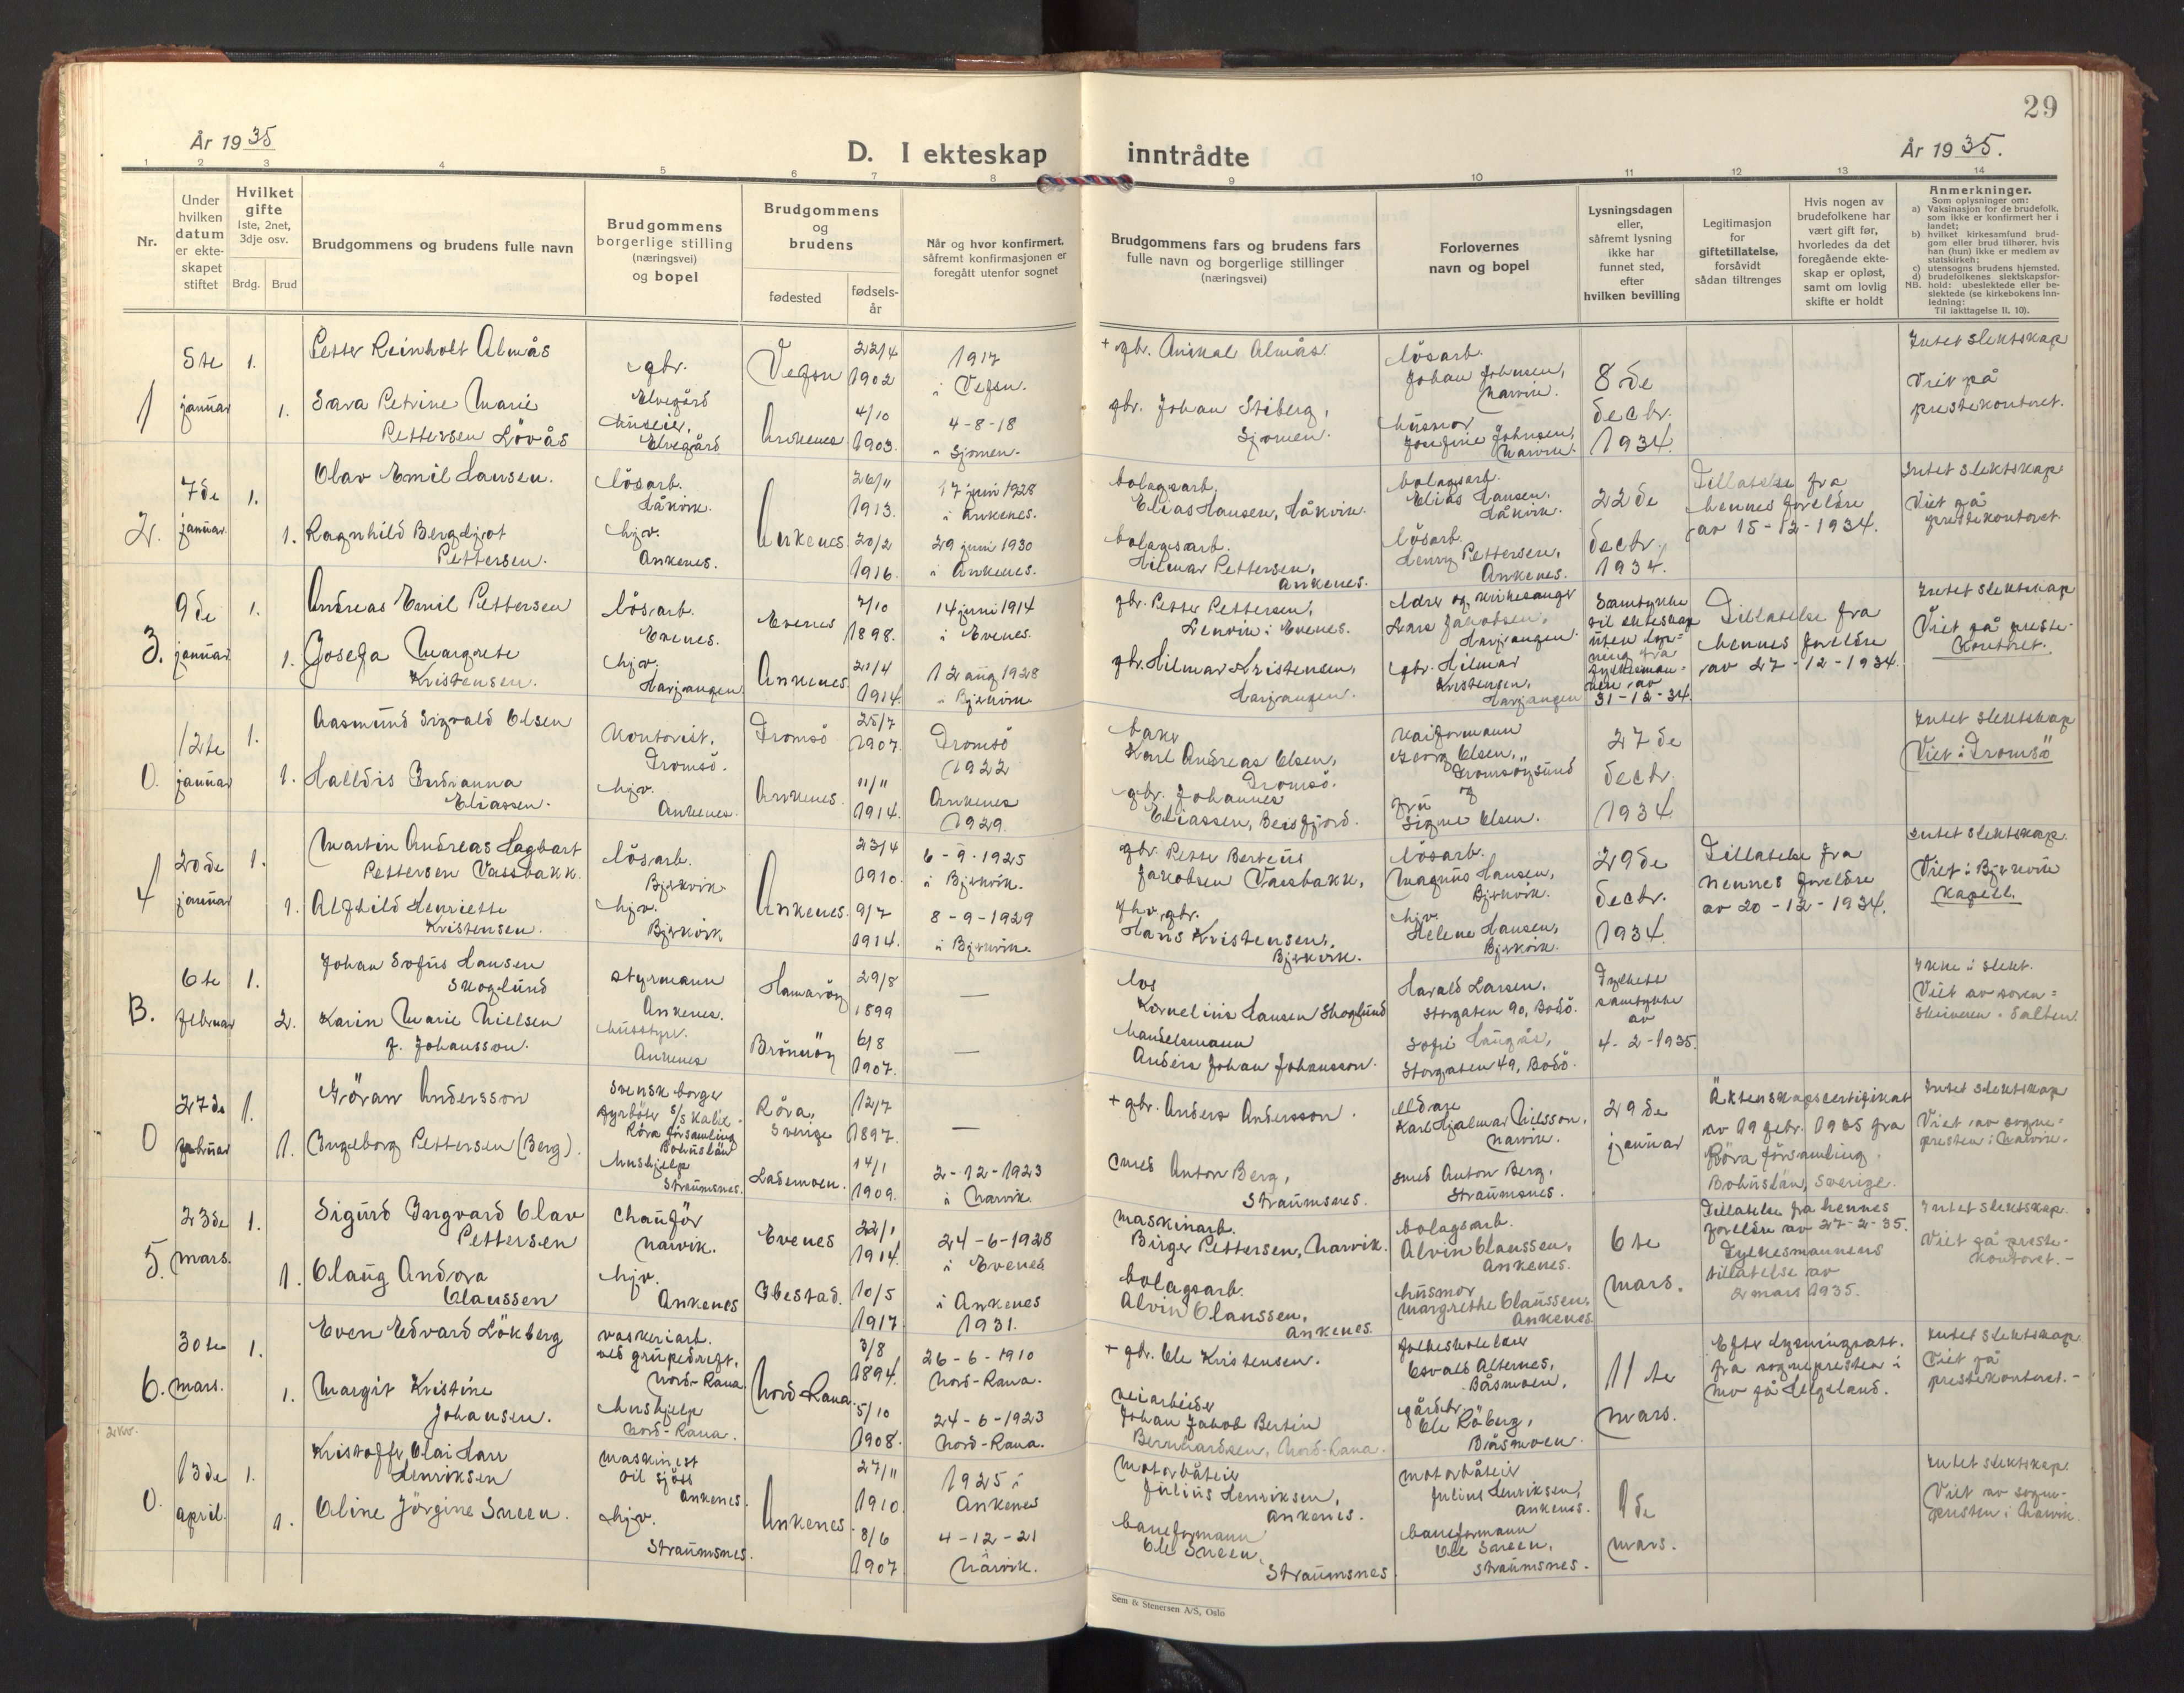 29
År 1935
D. I ekteskap inntrådte
År 1935.
1 2 3 4 5 6 7 8 9 10 11 12 13 14
Nr.
Under hvilken datum er ekteskapet stiftet
Hvilket gifte 1ste, 2net, 3dje osv.
Brdg. Brud
Brudgommens og brudens fulle navn
Brudgommens borgerlige stilling (næringsvei) og bopel
Brudgommens og brudens
fødested
fødsels-år
Når og hvor konfirmert, såfremt konfirmasjonen er foregått utenfor sognet
Brudgommens fars og brudens fars fulle navn og borgerlige stillinger (næringsvei)
Forlovernes navn og bopel
Lysningsdagen eller, såfremt lysning ikke har funnet sted, efter hvilken bevilling
Legitimasjon for giftetillatelse, forsåvidt sådan tiltrenges
Hvis nogen av brudefolkene har vært gift før, hvorledes da det foregående ekteskap er opløst, samt om lovlig skifte er holdt
Anmerkninger.
Som oplysning om:
a) Vaksinasjon for de brudefolk, som ikke er konfirmert her i landet;
b) hvilket kirkesamfund brudgom eller brud tilhører, hvis han (hun) ikke er medlem av statskirken;
c) utensogns brudens hjemsted.
d) brudefolkenes slektskapsforhold: ubeslektede eller beslektede (se kirkebokens Innledning:
NB.
Til iakttagelse II. 10).
1 5te januar 1. Petter Reinholt Almås gbr. Elvegård Vefsn 22/4 1902 1917 i Vefsn. + gbr. Anikal Almås. lösarb. Johan Johnsen, Narvik. 8de decbr. 1934. Intet slektskap Viet på prestekontoret.
1. Sara Petrine Marie Pettersen Lövås huseier, Elvegård Ankenes 4/10 1903. 4-8-18 i Sjomen. gbr. Johan Stiberg, Sjomen. husmor Josefine Johnsen, Narvik.
2. 7de januar 1. Olav Emil Hansen. lösarb. Håkvik. Ankenes. 26/11 1913. 17 juni 1928 i Ankenes. bolagsarb. Elias Hansen, Håkvik. bolagsarb. Elias Hansen, Håkvik. 22de decbr. 1934. Tillatelse fra hennes foreldre av 15-12-1934. Intet slektskap. Viet på prestekontoret
1. Ragnhild Bergljot Pettersen. hjv. Ankenes. 20/2 1916. 29 juni 1930 i Ankenes. bolagsarb. Hilmar Pettersen, Ankenes. lösarb. Henry Pettersen, Ankenes.
3. 9de januar 1. Andreas Emil Pettersen lösarb. Evenes. Evenes 7/10 1898. 14 juni 1914 i Evenes. gbr. Petter Pettersen, Lenvik i Evenes. lærer og kirkesanger Lars Jakobsen, Harjangen. Samtykke til ekteskap uten lysning fra fylkesmannen av 31-12-34. Tillatelse fra hennes foreldre av 27-12-1934. Intet slektskap Viet på prestekontoret.
1. Josefa Margrete Kristensen. hjv. Harjangen Ankenes 21/4 1914. 12 aug 1928 i Bjerkvik. gbr. Hilmar Kristensen, Harjangen. gbr. Hilmar Kristensen, Harjangen
0. 12te januar 1. Aasmund Sigvald Olsen Kontorist, Tromsö. Tromsö 25/7 1907. Tromsö 1922 baker Karl Andreas Olsen, Tromsö. kaiformann Georg Olsen, Tromsöysund 27de decbr. 1934 Intet slektskap Viet i Tromsö
1. Halldis Indianna Eliassen. hjv. Ankenes. Ankenes. 11/11 1914. Ankenes 1929. gbr. Johannes Eliassen, Beisfjord. fru Signe Olsen.
4 20de januar 1. Martin Andreas Hagbart Pettersen Vassbakk. lösarb. Bjerkvik. Ankenes. 23/4 1910. 6-9-1925 i Bjerkvik. gbr. Petter Berteus Jakobsen Vassbakk, lösarb. Magnus Hansen, Bjerkvik. 29de decbr. 1934. Tillatelse fra hennes foreldre av 20-12-1934. Intet slektskap. Viet i Bjerkvik kapell.
1. Alfhild Henriette Kristensen. hjv. Bjerkvik 9/7 1914. 8-9-1929 i Bjerkvik. fhv. gbr. Hans Kristensen, Bjerkvik. hjv. Helene Hansen, Bjerkvik.
B. 6te februar 1. Johan Sofus Hansen Skoglund styrmann Ankenes. Hamaröy 29/8 1899 — los Kornelius Hansen Skoglund Harald Larsen, Storgaten 90, Bodö. Fylkets samtykke av 4-2-1935. Ikke i slekt. Viet av sorenskriveren i Salten.
2. Karin Marie Nielsen f. Johansson. husstyr. Ankenes Brönnöy 6/8 1907. — handelsmann Anders Johan Johansson. Sofie Haugås, Storgaten 49, Bodö.
0 27de februar 1. Göran Andersson Svensk borger fyrböter s/s Kalix Röra församling Bohuslän Röra, Sverige 12/7 1897. — + gbr. Anders Andersson. eldare Karl Hjalmar Nilsson, Narvik. 29de januar Äktenskapscertifikat av 19 febr. 1935 fra Röra församling, Bohuslän, Sverige. Intet slektskap Viet av sognepresten i Narvik.
1. Ingeborg Pettersen (Berg). hushjelp Straumsnes. Lasemoen. 14/1 1909. 2-12-1923 i Narvik. smed Anton Berg, Straumsnes. smed Anton Berg, Straumsnes.
5. 23de mars. 1. Sigurd Ingvard Olav Pettersen Chauför Narvik. Evenes 22/1 1914. 24-6-1928 i Evenes maskinarb. Birger Pettersen, Narvik. bolagsarb. Alvin Claussen, Ankenes. 6te mars. Tillatelse fra hennes foreldre av 27-2-35. Fylkesmannens tillatelse av 2 mars 1935. Intet slektskap. Viet på prestekontoret.-
1. Olaug Andora Claussen hjv. Ankenes Ibestad. 10/5 1917. i Ankenes 1931. bolagsarb. Alvin Claussen, Ankenes. husmor Margrethe Claussen, Ankenes
6. 30te mars. 1. Even Edvard Lökberg vaskeriarb. ved grubedrift, Nord-Rana Nord Rana 3/8 1894. 26-6-1910 Nord-Rana. + gbr. Ole Kristensen. Osvald Alternes, Båsmoen. 11te mars. Efter lysningsatt. fra sognepresten i Mo på Helgeland. Intet slektskap. Viet på prestekontoret.-
1. Margit Kristine Johansen. hushjelp Nord-Rana. 5/10 1908. 24-6-1923 Nord-Rana. veiarbeider Johan Jakob Bertin Bernhardsen, Nord-Rana. gårdbr. Ole Röberg, Båsmoen.
2 kv.
0. 13de april. 1. Kristoffer Olai Harr Henriksen maskinist til sjöss Ankenes. Ankenes 27/11 1910. 1925 i Ankenes motorbåteier Julius Henriksen, Ankenes. motorbåteier Julius Henriksen, Ankenes. 9de mars. Intet slektskap. Viet av sognepresten i Narvik.
1. Oline Jörgine Sneen. hjv. Straumsnes. 8/6 1907 4-12-21 Narvik. baneformann Ole Sneen, Straumsnes baneformann Ole Sneen, Straumsnes.
Sem & Stenersen A/S, Oslo